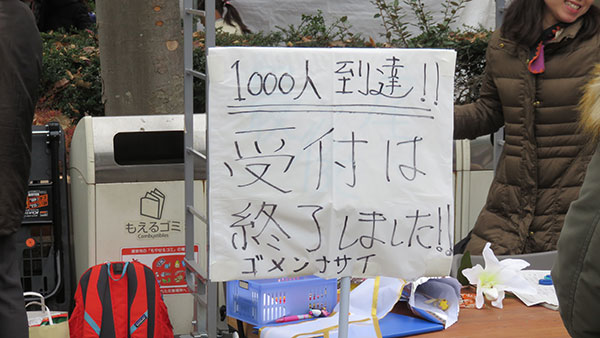 1000人 到達!!
受付は
終了しました!!
ゴメンナサイ
もえるゴミ
Combustibles